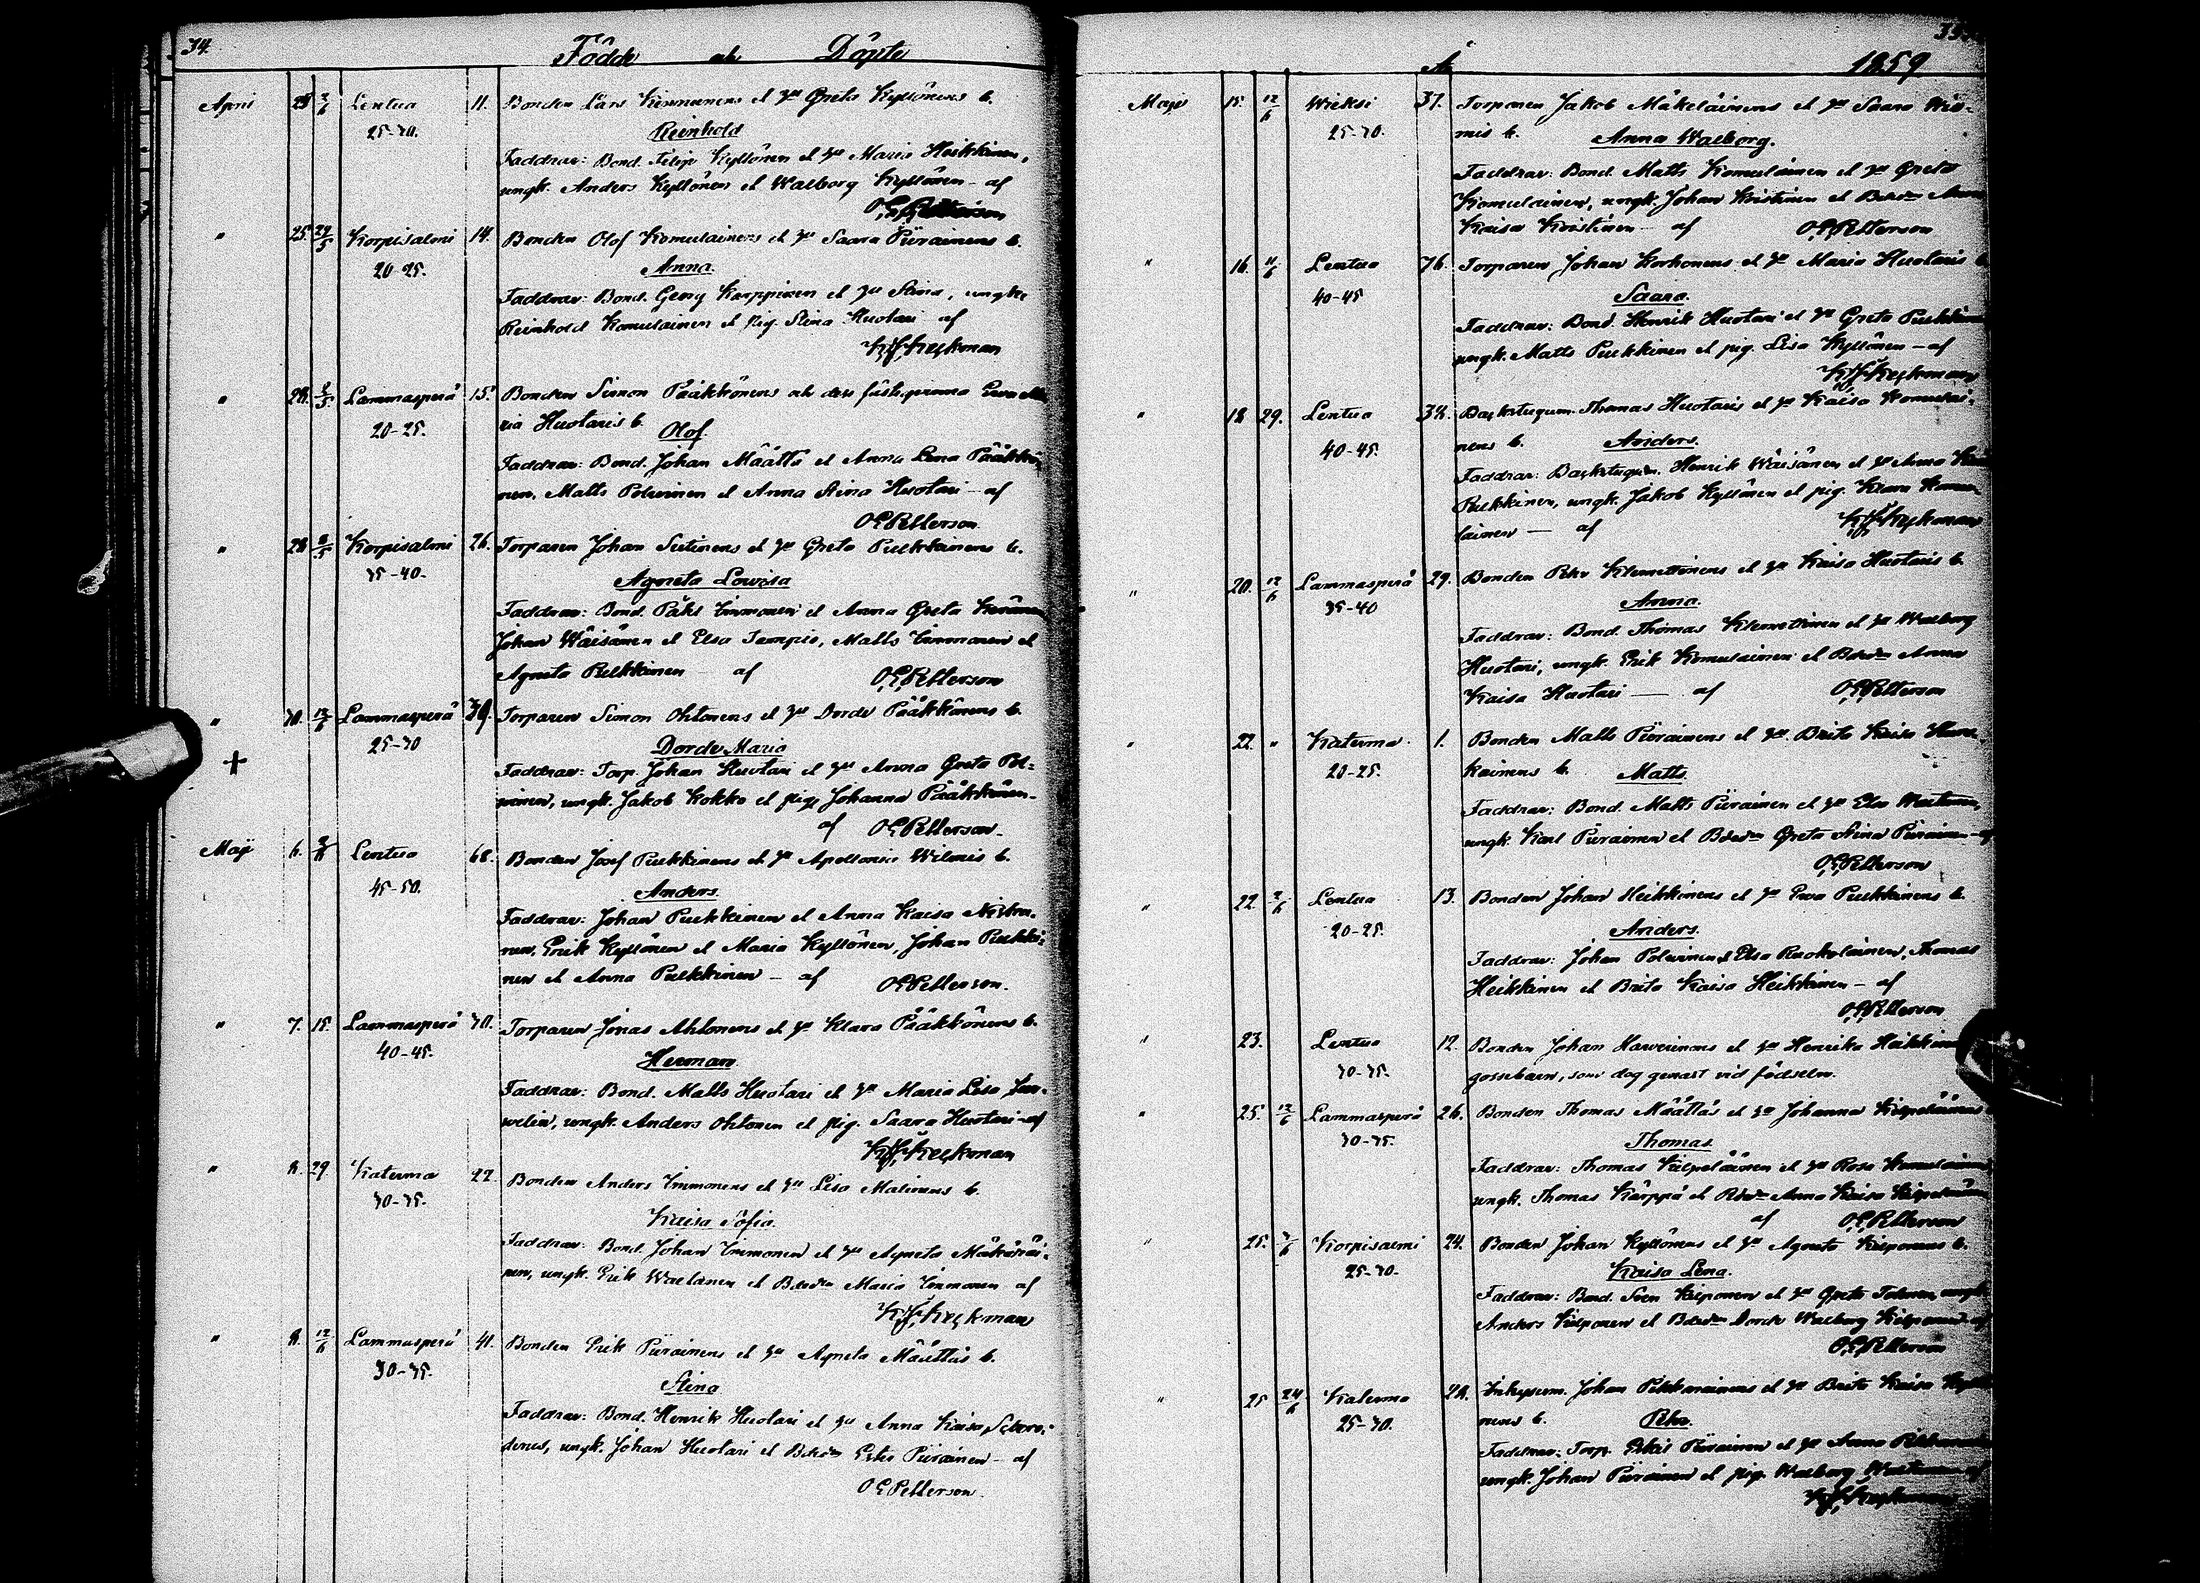 34.
Födde och Döpte
April 25 2/6 Lentua 11. Bonden Lars Kinnunens et hu Greta Kyllönens b.
25-30. Reinhold
Faddrar: Bond. Filip Kyllönen et hu Maria Heikkinen,
ungk. Anders Kyllönen et Walborg Kyllönen - af
O E Petterson
" 25. 29/5 Korpisalmi 14. Bonden Olof Komulainens et hu Saara Piirainens b.
20-25. Anna.
Faddrar: Bond. Georg Karppinen et hu Stina, ungk.
Reinhold Komulainen et pig. Stina Huotari af
Keckman
" 28. /5 Lammasperä 15. Bonden Simon Pääkkönens och dess fästeqvinna Ewa Ma
20-25. ria Huotaris b. Olof.
Faddrar: Bond. Johan Määttä et Anna Lena Pääkkö
nen, Matts Polwinen et Anna Stina Huotari - af
O E Petterson.
" 28 8/5 Korpisalmi 26. Torparen Johan Sutinens et hu Greta Pulkkinens b.
35-40. Agneta Lowisa
Faddrar: Bond. Påhl Immonen et Anna Greta
Johan Wäisänen et Elsa Tempio, Matts Immonen et
Agneta Pulkkinen - af O E Petterson
" 30. 12/6 Lammasperä 39. Torparen Simon Ohtonens et hu Dorde Pääkkönens b.
+ 25-30 Dorde Maria
Faddrar: Torp. Johan Huotari et hu Anna Greta Pol=
winen, ungk. Jakob Kokko et pig. Johanna Pääkkönen -
af O E Petterson.
Maj 6. /6 Lentua 68. Bonden Josef Pulkkinens et hu Apollonia Wilmis b.
45-50. Anders.
Faddrar: Johan Pulkkinen et Anna Kaisa
nen, Erik Kyllönen et Maria Kyllönen, Johan Pulkki=
nen et Anna Pulkkinen - af O E Petterson.
" 7. 15. Lammasperä 30. Torparen Jonas Ahtonens et hu Klara Pääkkönens b.
40-45. Herman
Faddrar: Bond. Matts Huotari et hu Maria Lisa Jun=
welin, ungk. Anders Ohtonen et pig. Saara Huotari - af
Keckman
" 8. 29. Katerma 22. Bonden Anders Immonens et hu Lisa Malinens b.
30-35. Kaisa Sofia.
Faddrar: Bond. Johan Immonen et hu Agneta Mäkäräi=
nen, ungk. Erik Waltanen et Bdedn Maria Immonen af
Keckman
" 8. 12/6 Lammasperä 41. Bonden Erik Piirainens et hu Agneta Määttäs b.
30-35. Stina
Faddrar: Bond. Henrik Huotari et hu Anna Kaisa
ungk. Johan Huotari et Bdedn Ester Piirainen - af
O E Petterson.
År 1859
Maji 15. 12/6 Wieksi 37. Torparen Jakob Mäkeläinens et hu Saara Wil=
25-30. mis b. Anna Walborg.
Faddrar: Bond. Matts Komulainen et hu Greta
Komulainen, ungk. Johan Kristinen et Bdedn Anna
Kaisa Kristinen - af O E Petterson
" 16. 11/6 Lentua 76. Torparen Johan Korhonens et hu Maria Huotaris b
40-45 Saara.
Faddrar: Bond. Henrik Huotari et hu Greta Pulkkinen
ungk. Matts Pulkkinen et pig. Lisa Kyllönen - af
Keckman
" 18 29. Lentua 38. Backstugum. Thomas Huotaris et hu Kaisa Komulai=
40-45. nens b. Anders.
Faddrar: Backstugum. Henrik Wäisänen et hu Anna
Pulkkinen, ungk. Jakob Kyllönen et pig. Klara Komu=
lainen - af Keckman
" 20. 12/6 Lammasperä 29. Bonden Pehr Klemettinens et hu Kaisa Huotaris b.
35-40 Anna.
Faddrar: Bond. Thomas Klemettinen et hu Walborg
Huotari, ungk. Erik Komulainen et Bdedn Anna
Kaisa Huotari - af O E Petterson
" 22 " Katerma 1. Bonden Matts Piirainens et hu Brita Kaisa
20-25. kainens b. Matts.
Faddrar: Bond. Matts Piirainen et hu Elsa
ungk. Karl Piirainen et Bdedn Greta Stina Piirainen - af
O E Petterson
" 22 /6 Lentua 13. Bonden Johan Heikkinens et hu Ewa Pulkkinens b.
20-25. Anders.
Faddrar: Johan Polwinen et Elsa Ruokolainen, Thomas
Heikkinen et Brita Kaisa Heikkinen - af
O E Petterson
" 23. Lentua 12. Bonden Johan Harwinens et hu Henrika
30-35. gossebarn, som dog genast vid födseln.
" 25. 12/6 Lammasperä 26. Bonden Thomas Määttäs et hu Johanna Kilpeläinens
30-35. Thomas.
Faddrar: Thomas Kilpeläinen et hu Rosa Komulainen
ungk. Thomas Kärppä et Bdedn Anna Kaisa Kilpeläinen
af O E Petterson
" 25. /6 Korpisalmi 24. Bonden Johan Kyllönens et hu Agneta Kilponens b.
25-30. Kaisa Lena.
Faddrar: Bond. Sven Kilponen et hu Greta ungk.
Anders Kilponen et Bdedn Dorde Walborg Kilponen - af
O E Petterson
" 25 24/6 Katerma 28. Inhysum. Johan et hu Brita Kaisa
25-30. nens b. Pehr.
Faddrar: Torp. Piirainen et hu Anna
ungk. Johan Piirainen et pig. Walborg af
Keckman